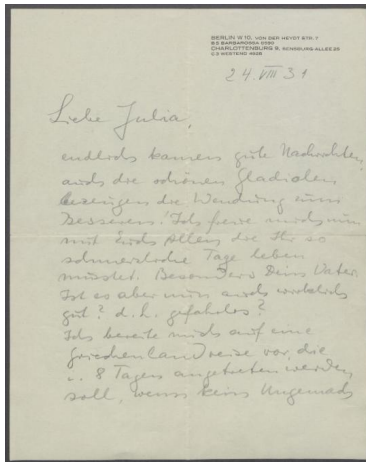 BERLIN W 10, VON DER HEYDT STR. 7
B 5 BARBAROSSA 0090
CHARLOTTENBURG 9, ALLEE 25
C 3 WESTEND 4606
24. VIII 31
Liebe Julia,
endlich kamen gute Nachrichten,
auch die schönen Gladiolen
bezeugen die Wendung zum
Besseren! Ich freue mich nun
mit Euch Allen, die Ihr so
schmerzliche Tage leben
musstet. Besonders Dein Vater.
Ist es aber nun auch wirklich
gut? d.h. gefahrlos?
Ich bereite mich auf eine
Griechenlandreise vor, die
in 8 Tagen angetreten werden
soll, wenns kein Ungemach